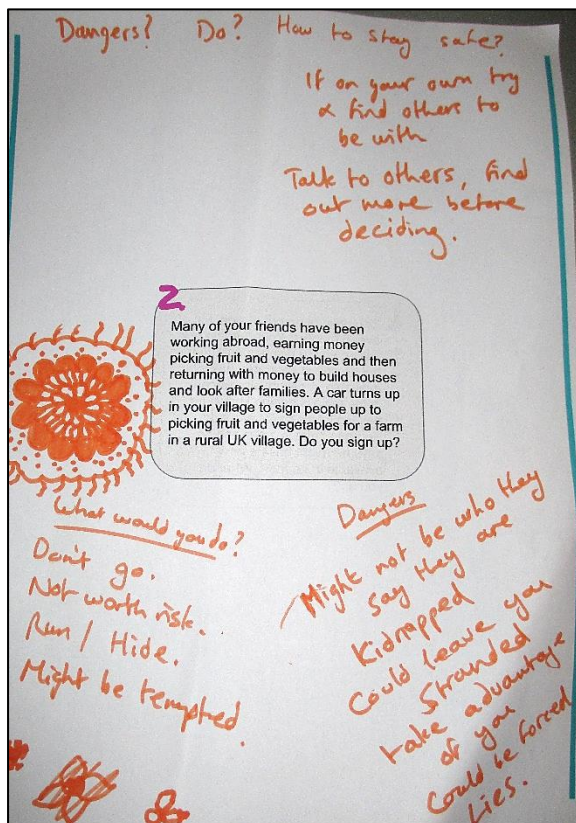 Dangers? Do? How to stay safe?
If on your own try
& find others to
be with
Talk to others, find
out more before
deciding.
2
Many of your friends have been
working abroad, earning money
picking fruit and vegetables and then
returning with money to build houses
and look after families. A car turns up
in your village to sign people up to
picking fruit and vegetables for a farm
in a rural UK village. Do you sign up?
What would you do?
Don't go.
Not worth risk.
Run / Hide.
Might be tempted.
Dangers
Might not be who they
say they are
Kidnapped
Could leave you
stranded
take advantage
of you
Could be forced
Lies.